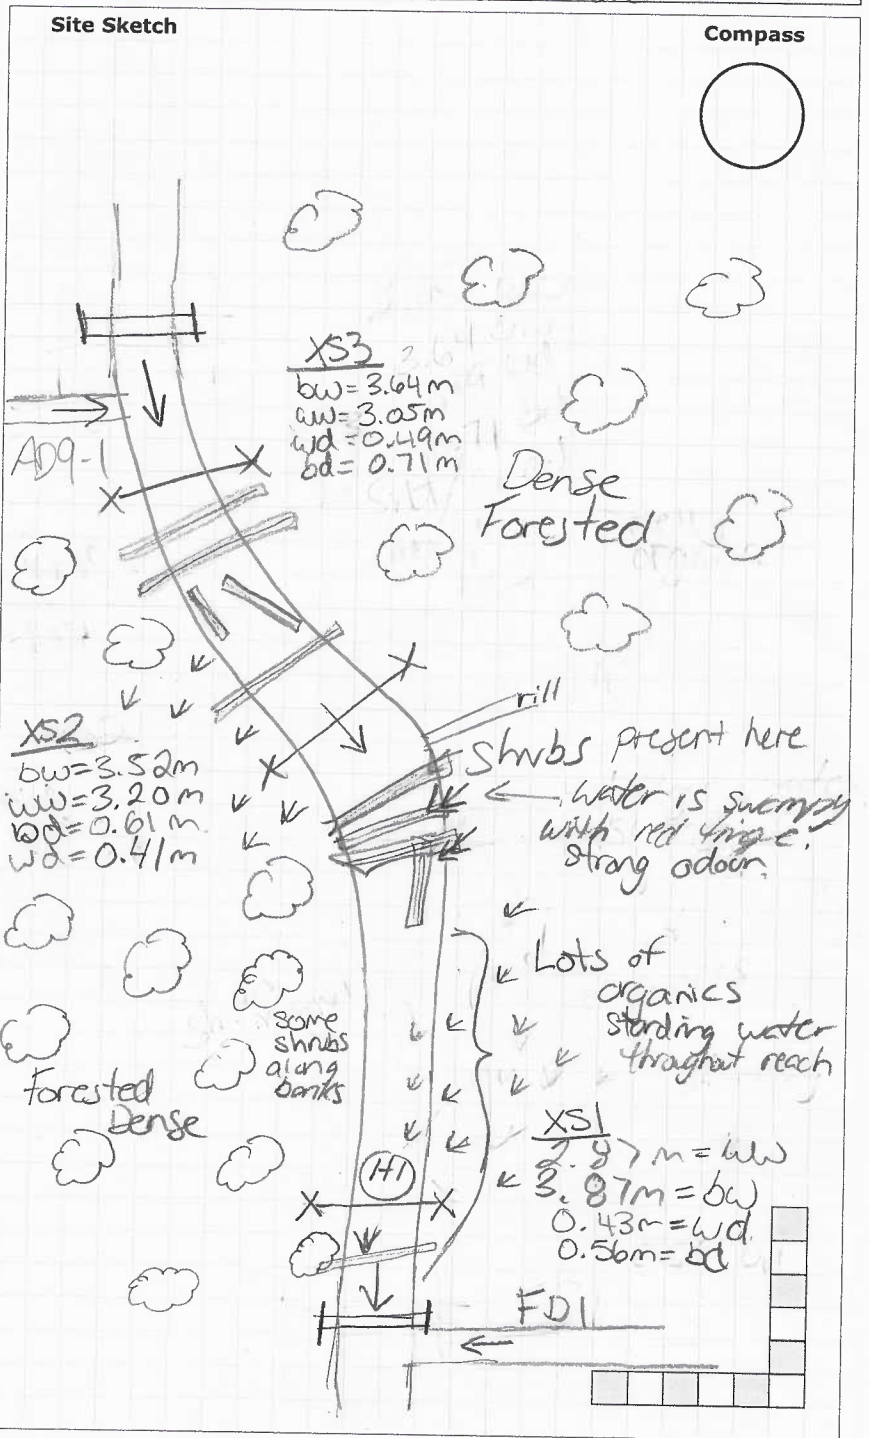 Site Sketch
Compass
XS3
bw = 3.64 m
ww = 3.05 m
wd = 0.49 m
bd = 0.71 m
AD9-1
Dense
Forested
rill
XS2
bw = 3.52 m
ww = 3.20 m
bd = 0.61 m
wd = 0.41 m
Shrubs present here
water is swampy
with red
strong odour.
Lots of
organics
standing water
throughout reach
some
shrubs
along
banks
Forested
Dense
XS1
2.87 m = ww
3.87 m = bw
0.43 m = wd
0.56 m = bd
H1
FD1